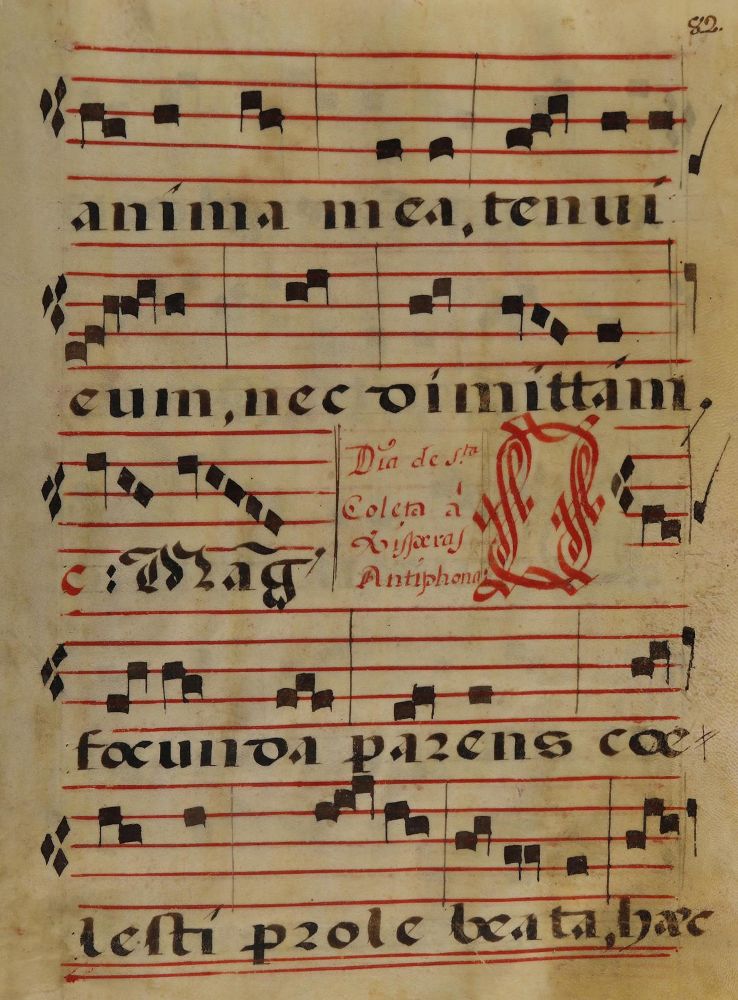 82.
anima mea, tenui
eum, nec dimittam,
c: Mag̃
Dia de s.ta
Coleta á
Visperas
Antiphona:
O
foecunda parens coe
lesti prole beata, haec